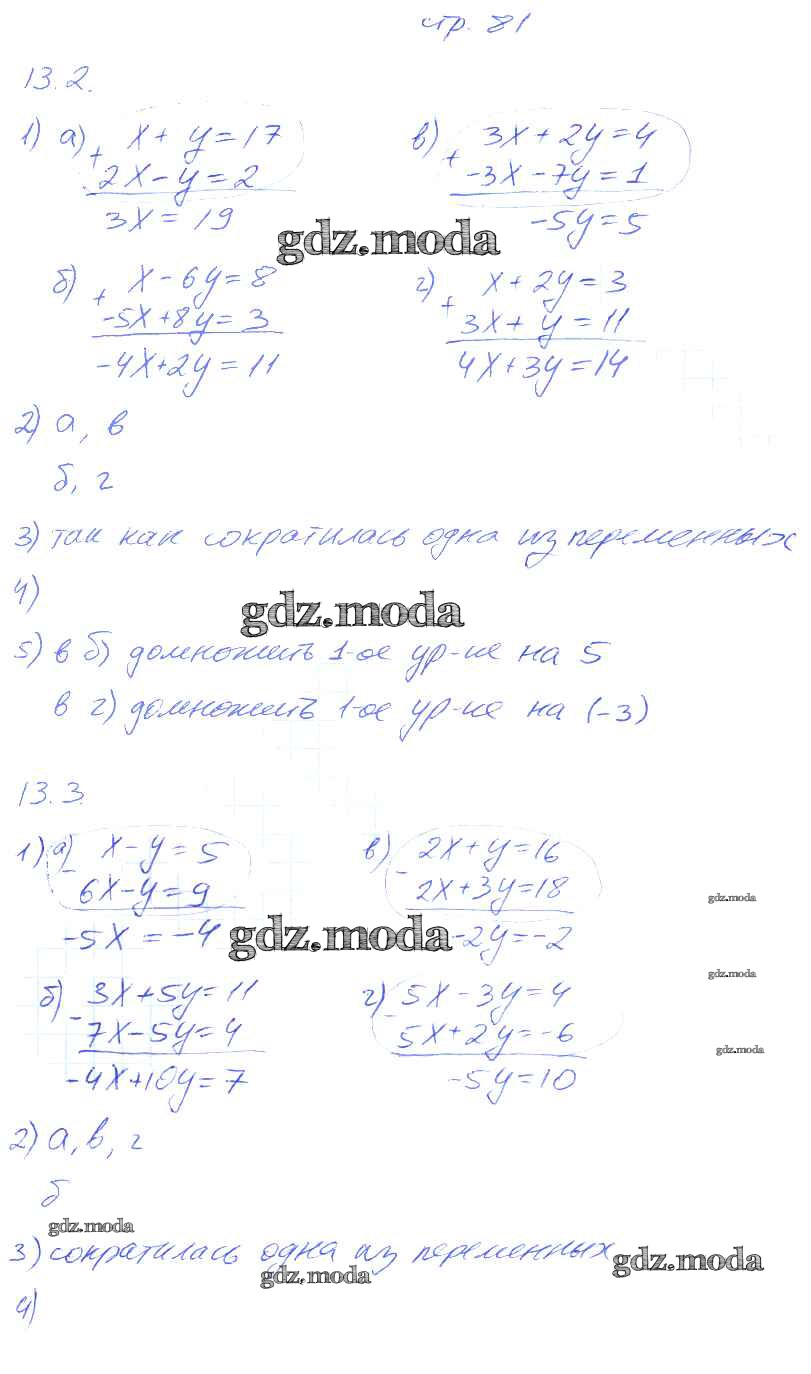 стр. 81
13.2.
1) а) + x + y = 17
2x - y = 2
3x = 19
в) + 3x + 2y = 4
-3x - 7y = 1
-5y = 5
gdz.moda
б) + x - 6y = 8
-5x + 8y = 3
-4x + 2y = 11
г) + x + 2y = 3
3x + y = 11
4x + 3y = 14
2) а, в
б, г
3) так как сократилась одна из переменных
4)
gdz.moda
5) в б) домножить 1-ое ур-ие на 5
в г) домножить 1-ое ур-ие на (-3)
13.3.
1) а) - x - y = 5
6x - y = 9
-5x = -4
в) - 2x + y = 16
2x + 3y = 18
-2y = -2
gdz.moda
gdz.moda
gdz.moda
gdz.moda
б) - 3x + 5y = 11
7x - 5y = 4
-4x + 10y = 7
г) - 5x - 3y = 4
5x + 2y = -6
-5y = 10
2) а, в, г
б
gdz.moda
3) сократилась одна из переменных
gdz.moda
gdz.moda
4)